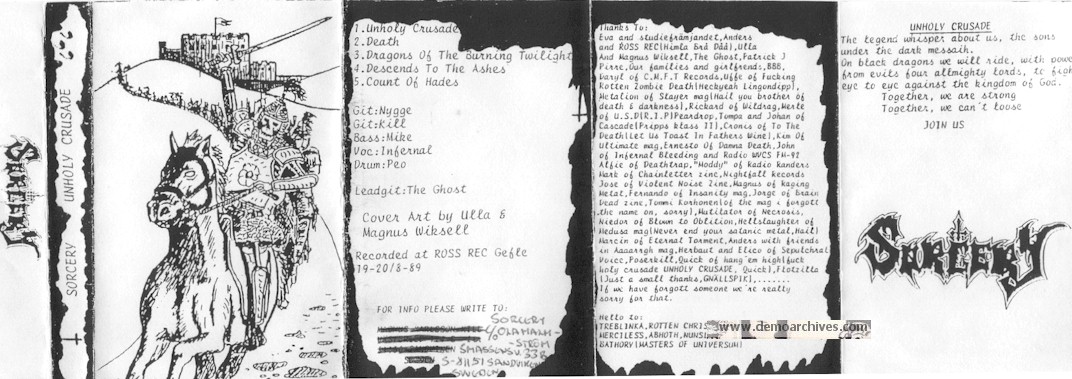 SORCERY
SORCERY UNHOLY CRUSADE
1.Unholy Crusade
2.Death
3.Dragons Of The Burning Twilight
4.Descends To The Ashes
5.Count Of Hades
Git:Nygge
Git:Kill
Bass:Mike
Voc:Infernal
Drum:Peo
Leadgit:The Ghost
Cover Art by Ulla &
Magnus Wiksell
Recorded at ROSS REC Gefle
19-20/8-89
FOR INFO PLEASE WRITE TO:
SORCERY
C/O LA MALM-
STRÖM
SMASSENSV. 33B
S-81151 SANDVIKEN
SWEDEN
Thanks To:
Eva and studiefrämjandet,Anders
and ROSS REC(Himla Bra Dåå),Ulla
And Magnus Wiksell,The Ghost,Patrick J
Pirre,Our families and girlfriends,BBB,
Daryl of C.M.F.T Records,Uffe of Fucking
Rotten Zombie Death(Heckyeah Lingondipp),
Metalion of Slayer mag(Hail you brother of
death & darkness),Rickard of Wildrag,
of U.S.D(R.I.P)Peardrop,Tompa and Johan of
Cascade(Pripps klass II),Cronis of To The
Death(Let Us Toast In Fathers Wine),Kim Of
Ultimate mag,Ernesto Of Damna Death,John
of Infernal Bleeding and Radio WVCS FM-91
Alfie of Deathtrap,"Moddy" of Radio Randers
Mark of Chainletter zine,Nightfall Records
Jose of Violent Noise Zine,Magnus of Raging
Metal,Fernando of Insanity mag,Jorge of Brain
Dead zine,Tommi Korhonen(of the mag i forgott
the name on, sorry),Mutilator of Necrosis,
Niedor of Blown to Oblition,Hellslaughter of
Medusa mag(Never end your satanic metal,Hail)
Marcin of Eternal Torment,Anders with friends
in Aaaargh mag,Herbaut and Elico of Sepulchral
Voice,Poserkill,Quick of hang'em high(fuck
holy crusade UNHOLY CRUSADE, Quick),Flotzilla
(Just a small thanks,GNÄLLSPIK),........
If we have forgott someone we're really
sorry for that.
Hello to:
TREBLINKA,ROTTEN
MERCILESS,ABHOTH,
BATHORY(MASTERS OF UNIVERSUM)
www.demoarchives.com
UNHOLY CRUSADE
The legend whisper about us, the sons
under the dark messaih.
On black dragons we will ride, with power
from evils four allmighty lords, to fight
eye to eye against the kingdom of God.
Together, we are strong
Together, we can't loose
JOIN US
SORCERY